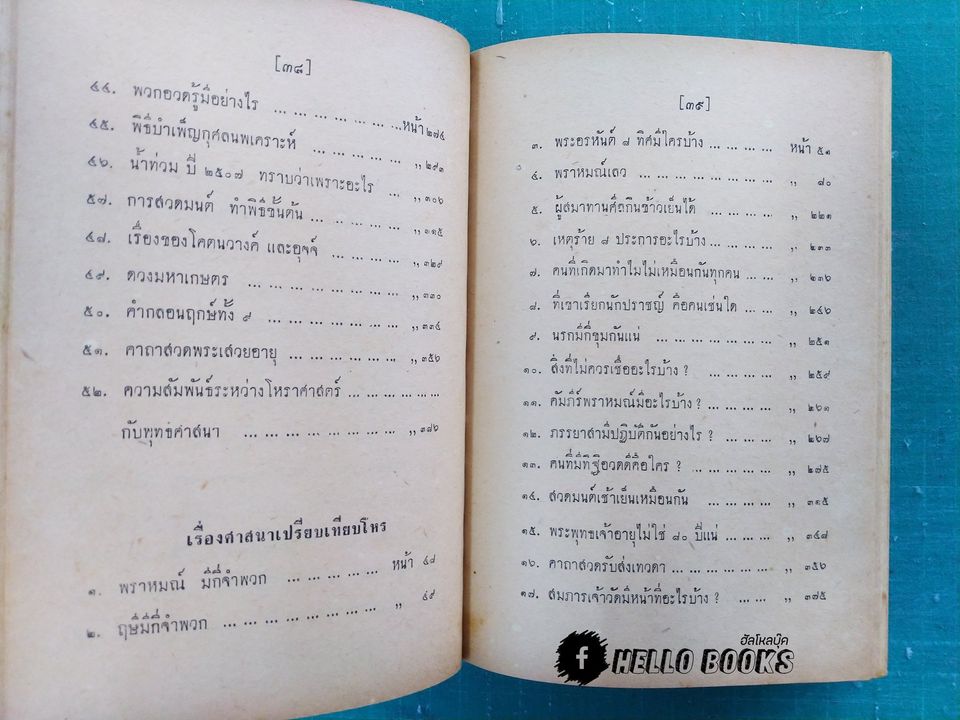 [๓๘]
๔๔. พวกอวดรู้มีอย่างไร ... ... ... ... ... ... ...หน้า ๒๗๔
๔๕. พิธีบำเพ็ญกุศลนพเคราะห์ ... ... ... ... ... ,, ๒๙๓
๔๖. น้ำท่วม ปี ๒๕๐๗ ทราบว่าเพราะอะไร ... ... ,, ๓๐๖
๕๗. การสวดมนต์ ทำพิธีขั้นต้น ... ... ... ... ... ,, ๓๑๕
๔๘. เรื่องของโคตนวางค์ และอุจจ์ ... ... ... ... ,, ๓๒๙
๔๙. ดวงมหาเกษตร ... ... ... ... ... ... ... ... ,, ๓๓๐
๕๐. คำกลอนฤกษ์ทั้ง ๙ ... ... ... ... ... ... ... ,, ๓๓๔
๕๑. คาถาสวดพระเสวยอายุ ... ... ... ... ... ... ,, ๓๕๖
๕๒. ความสัมพันธ์ระหว่างโหราศาสตร์ ... ... ... ... ...
กับพุทธศาสนา ... ... ... ... ... ... ... ,, ๓๘๖
เรื่องศาสนาเปรียบเทียบโหร
๑. พราหมณ์ มีกี่จำพวก ... ... ... ... ... หน้า ๔๘
๒. ฤษีมีกี่จำพวก ... ... ... ... ... ... ... ,, ๔๙
[๓๙]
๓. พระอรหันต์ ๘ ทิศมีใครบ้าง ... ... ... ... หน้า ๕๑
๔. พราหมณ์เลว ... ... ... ... ... ... ... ... ,, ๘๐
๕. ผู้สมาทานศีลกินข้าวเย็นได้ ... ... ... ... ,, ๒๒๑
๖. เหตุร้าย ๘ ประการอะไรบ้าง ... ... ... ... ,, ๒๓๓
๗. คนที่เกิดมาทำไมไม่เหมือนกันทุกคน ... ... ,, ๒๓๖
๘. ที่เขาเรียกนักปราชญ์ คือคนเช่นใด ... ... ,, ๒๔๖
๙. นรกมีกี่ขุมกันแน่ ... ... ... ... ... ... ... ,, ๒๕๑
๑๐. สิ่งที่ไม่ควรเชื่ออะไรบ้าง ? ... ... ... ... ,, ๒๕๙
๑๑. คัมภีร์พราหมณ์มีอะไรบ้าง ? ... ... ... ... ,, ๒๖๑
๑๒. ภรรยาสามีปฏิบัติกันอย่างไร ? ... ... ... ,, ๒๖๗
๑๓. คนที่มีทิฐิอวดดีคือใคร ? ... ... ... ... ... ,, ๒๗๕
๑๔. สวดมนต์เช้าเย็นเหมือนกัน ... ... ... ... ,, ๓๑๕
๑๕. พระพุทธเจ้าอายุไม่ใช่ ๘๐ ปีแน่ ... ... ... ,, ๓๔๘
๑๖. คาถาสวดรับส่งเทวดา ... ... ... ... ... ... ,, ๓๕๖
๑๗. สมภารเจ้าวัดมีหน้าที่อะไรบ้าง ? ... ... ,, ๓๗๕
ฮัลโหลบุ๊ค
f HELLO BOOKS